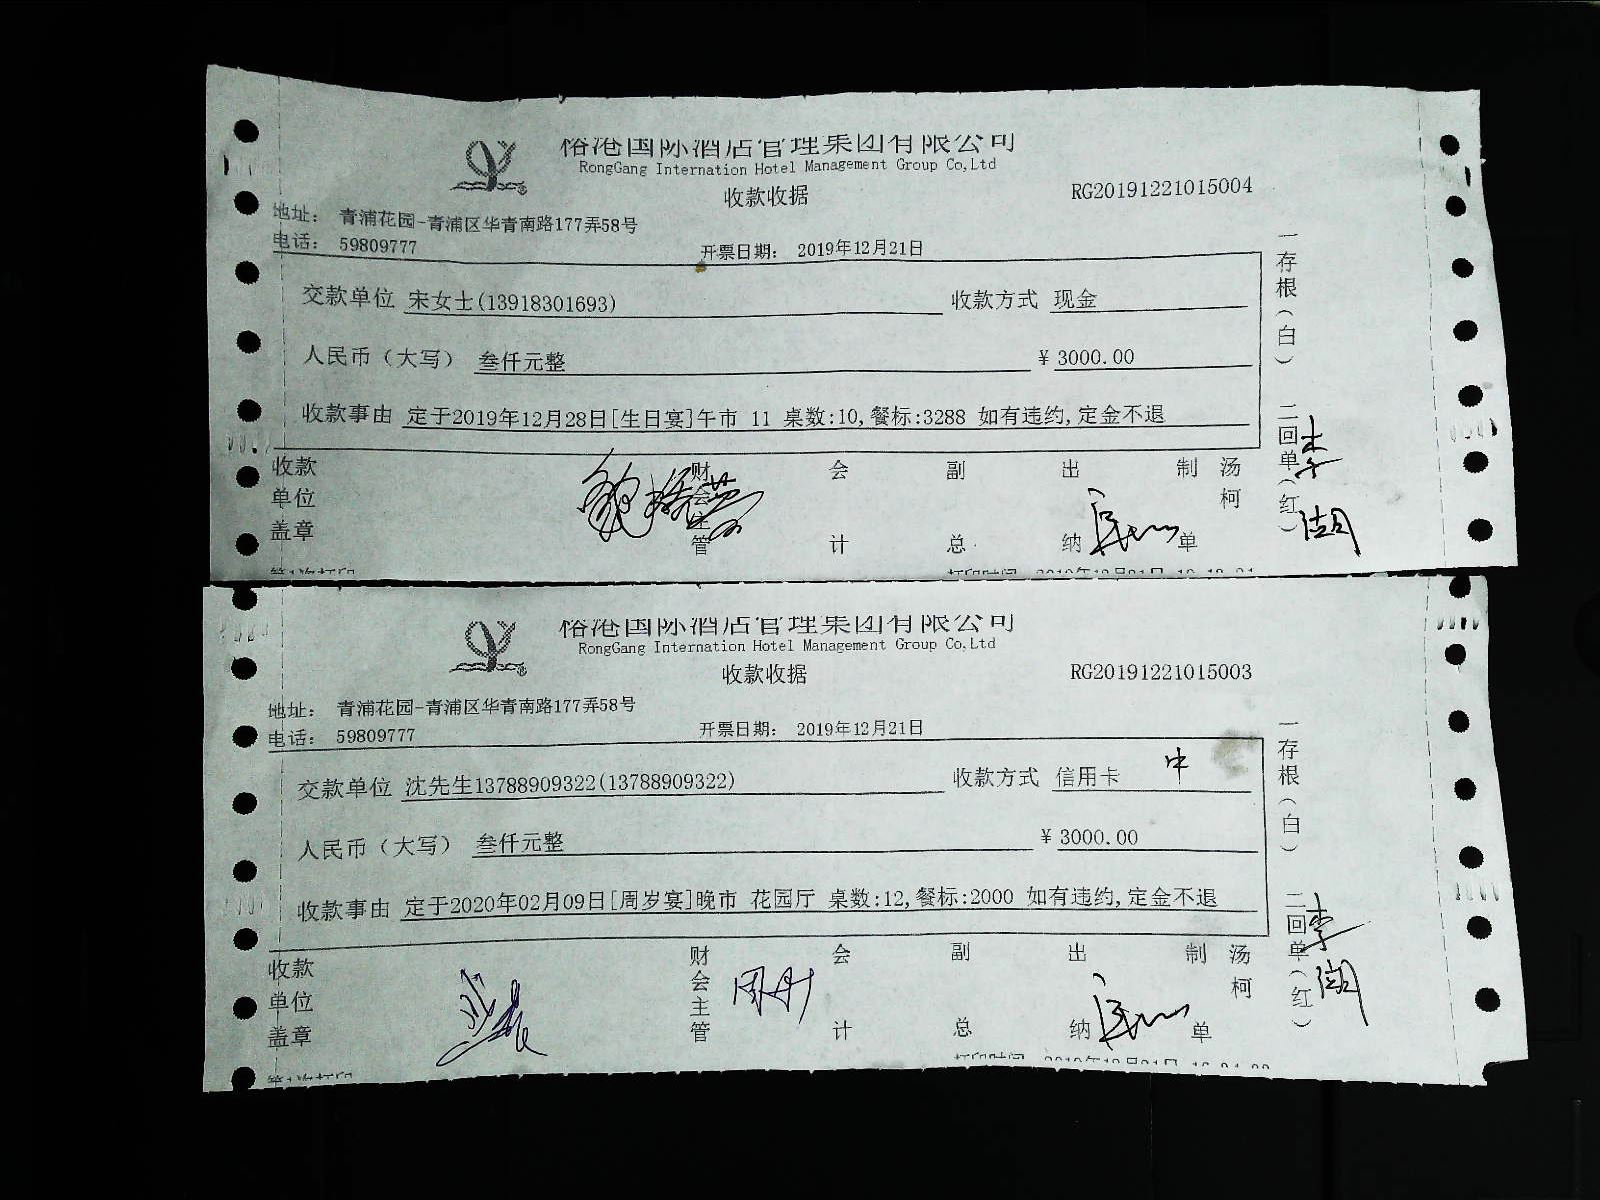 榕港国际酒店管理集团有限公司
RongGang Internation Hotel Management Group Co,Ltd
收款收据
RG20191221015004
地址： 青浦花园-青浦区华青南路177弄58号
电话： 59809777
开票日期： 2019年12月21日
交款单位 宋女士(13918301693)
收款方式 现金
人民币（大写） 叁仟元整
¥ 3000.00
收款事由 定于2019年12月28日[生日宴]午市 11 桌数:10,餐标:3288 如有违约,定金不退
一存根（白）
二回单（红）
收款单位盖章
财会主管
会计
副总
出纳
制单
汤柯
李湖
第1次打印
打印时间
榕港国际酒店管理集团有限公司
RongGang Internation Hotel Management Group Co,Ltd
收款收据
RG20191221015003
地址： 青浦花园-青浦区华青南路177弄58号
电话： 59809777
开票日期： 2019年12月21日
交款单位 沈先生13788909322(13788909322)
收款方式 信用卡 中
人民币（大写） 叁仟元整
¥ 3000.00
收款事由 定于2020年02月09日[周岁宴]晚市 花园厅 桌数:12,餐标:2000 如有违约,定金不退
一存根（白）
二回单（红）
收款单位盖章
财会主管
会计
副总
出纳
制单
汤柯
李湖
第1次打印
打印时间